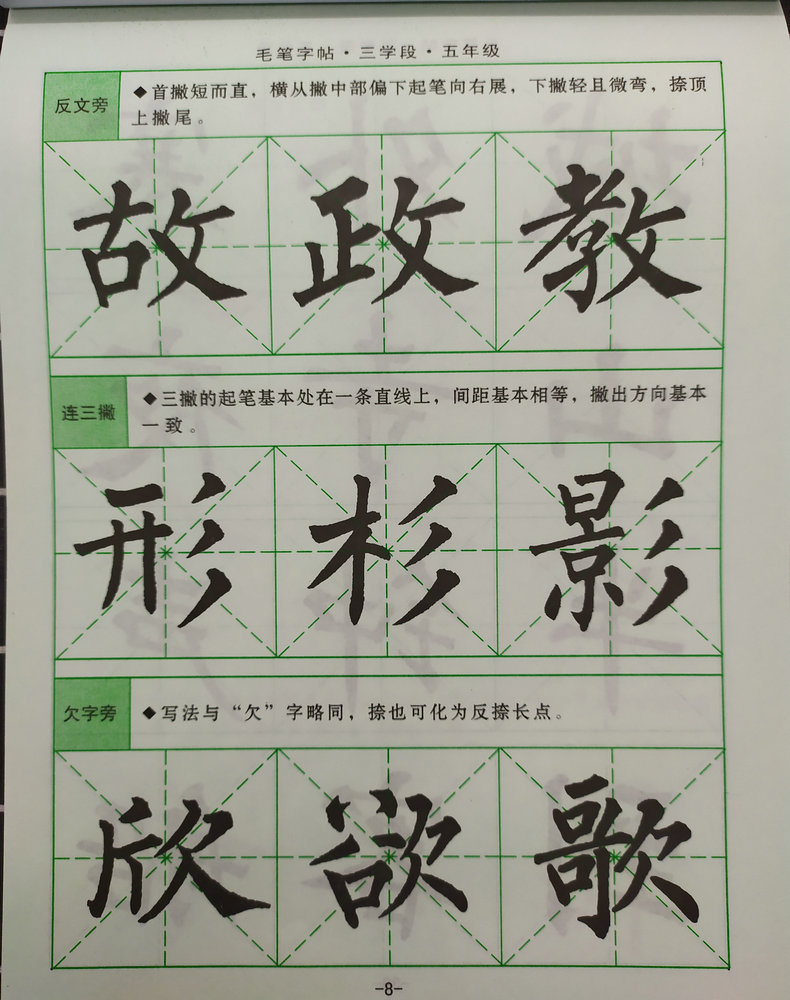 毛笔字帖·三学段·五年级
反文旁
◆首撇短而直，横从撇中部偏下起笔向右展，下撇轻且微弯，捺顶
上撇尾。
故政教
连三撇
◆三撇的起笔基本处在一条直线上，间距基本相等，撇出方向基本
一致。
形杉影
欠字旁
◆写法与“欠”字略同，捺也可化为反捺长点。
欣欲歌
-8-